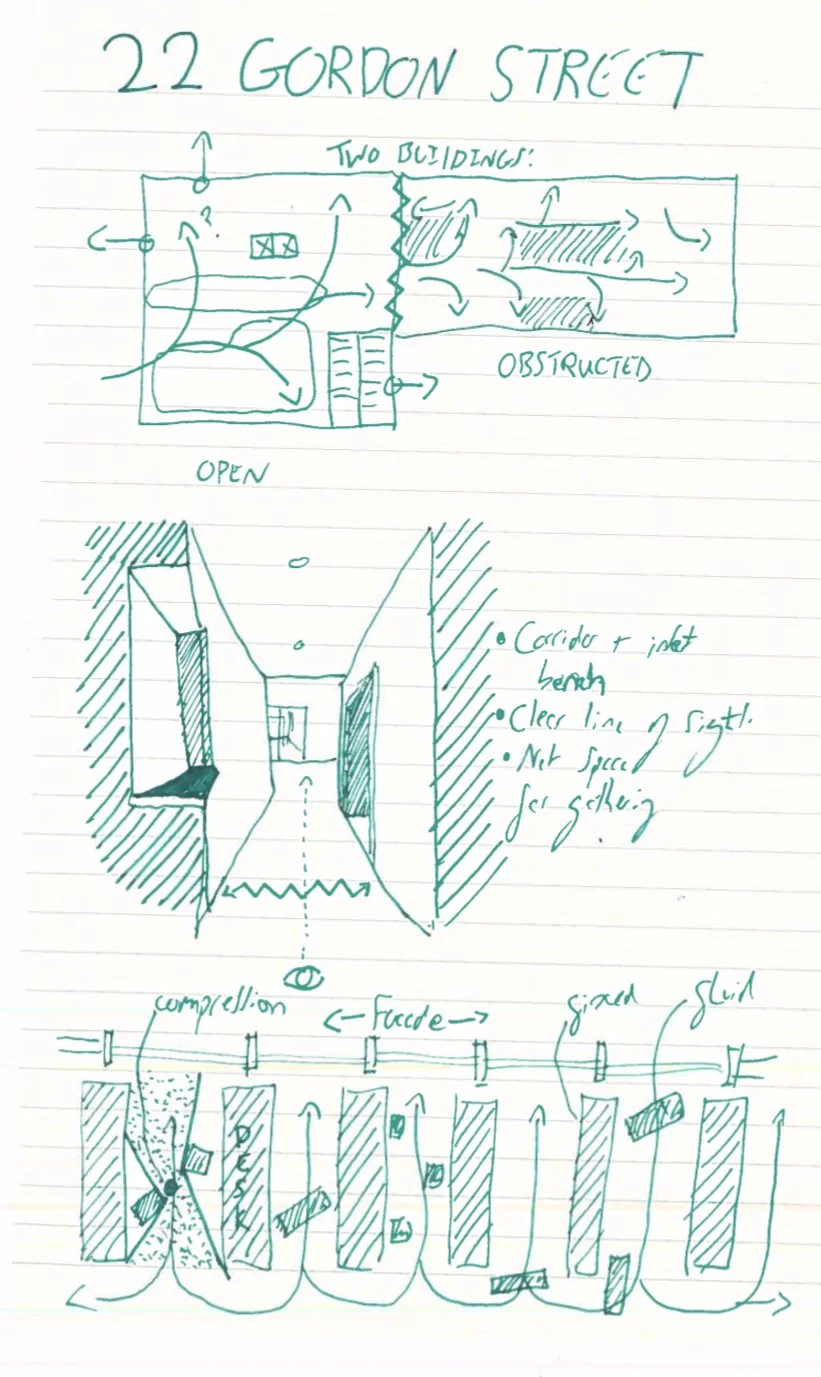 22 GORDON STREET
TWO BUILDINGS:
?
OBSTRUCTED
OPEN
• Corridor + inlet
bench
• Clear line of sight.
• Net space
for gathering
compression
← Facade →
fixed
fluid
DESK